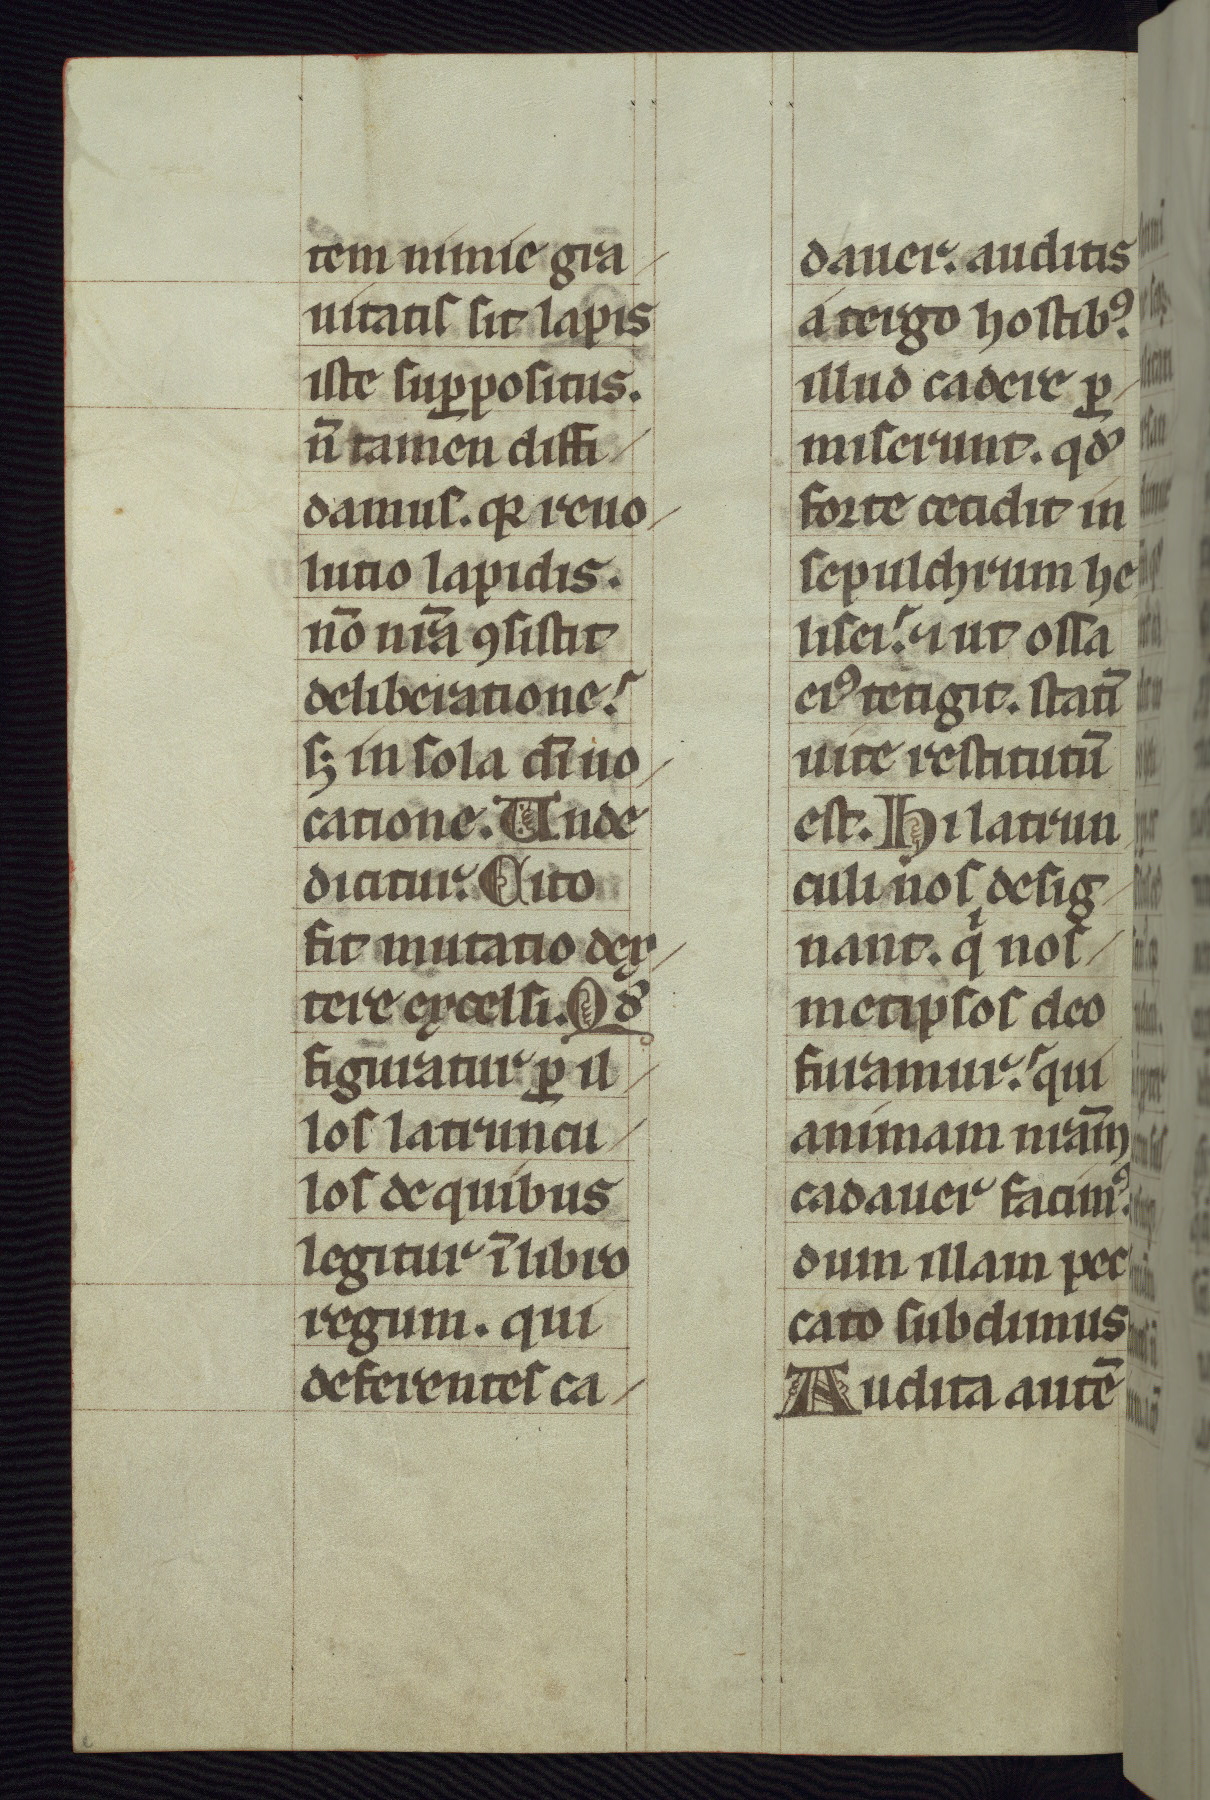 tem nimie gra
uitatis sit lapis
iste suꝑpositus.
n̄ tamen diffi
damus. qꝛ reuo
lutio lapidis.
nō nr̄a ꝯsistit
deliberatione.
sꝫ in sola dī uo
catione. Unde
dicitur. Cito
fit mutatio dex
tere excelsi. Qd̓
figuratur ꝑ il
los latruncu
los de quibus
legitur ī libro
regum. qui
deferentes ca
dauer. auditis
a tergo hostibꝰ.
illud cadere ꝑ
miserunt. qd̓
forte cecidit in
sepulchrum he
lisei. ⁊ ut ossa
eiꝰ tetigit. statī
uite restitutū
est. Hi latrun
culi nos desig
nant. qͥ nos
metipsos deo
furamur. qui
animam nr̄am
cadauer facimꝰ.
dum illam pec
cato subdimus
Audita autē